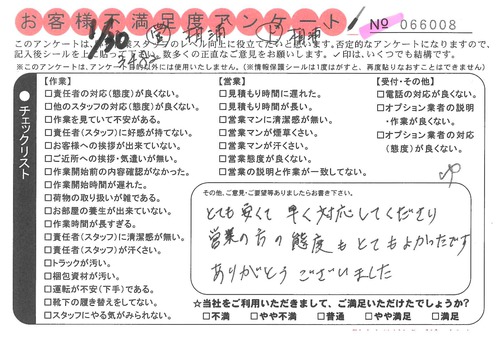 お客様不満足度アンケート
№ 066008
1/30
このアンケートは、
スタッフのレベル向上に役立てたいと思います。否定的なアンケートになりますので、
記入後シールを上に貼って下さい。数多くの正直なご意見をお願いします。✓印は、いくつでも結構です。
※このアンケートは、アンケート目的以外には使用いたしません。(※情報保護シールは1度はがすと、再度貼りなおすことはできません)
チェックリスト
【作業】
□責任者の対応(態度)が良くない。
□他のスタッフの対応(態度)が良くない。
□作業を見ていて不安がある。
□責任者(スタッフ)に好感が持てない。
□お客様への挨拶が出来ていない。
□ご近所への挨拶・気遣いが無い。
□作業開始前の内容確認がなかった。
□作業開始時間が遅れた。
□荷物の取り扱いが雑である。
□お部屋の養生が出来ていない。
□作業時間が長すぎる。
□責任者(スタッフ)に清潔感が無い。
□責任者(スタッフ)が汗くさい。
□トラックが汚い。
□梱包資材が汚い。
□運転が不安(下手)である。
□靴下の履き替えをしてない。
□スタッフにやる気がみられない。
【営業】
□見積もり時間に遅れた。
□見積もり時間が長い。
□営業マンに清潔感が無い。
□営業マンが煙草くさい。
□営業マンが汗くさい。
□営業態度が良くない。
□営業の説明と作業が一致してない。
【受付・その他】
□電話の対応が良くない。
□オプション業者の説明
・作業が良くない。
□オプション業者の対応
(態度)が良くない。
その他、ご意見・ご要望等ありましたらお書き下さい。
とても安くて 早く対応してくださり
営業の方の態度もとてもよかったです
ありがとうございました
☆当社をご利用いただきまして、ご満足いただけたでしょうか?
□不満 □やや不満 □普通 □やや満足 □満足